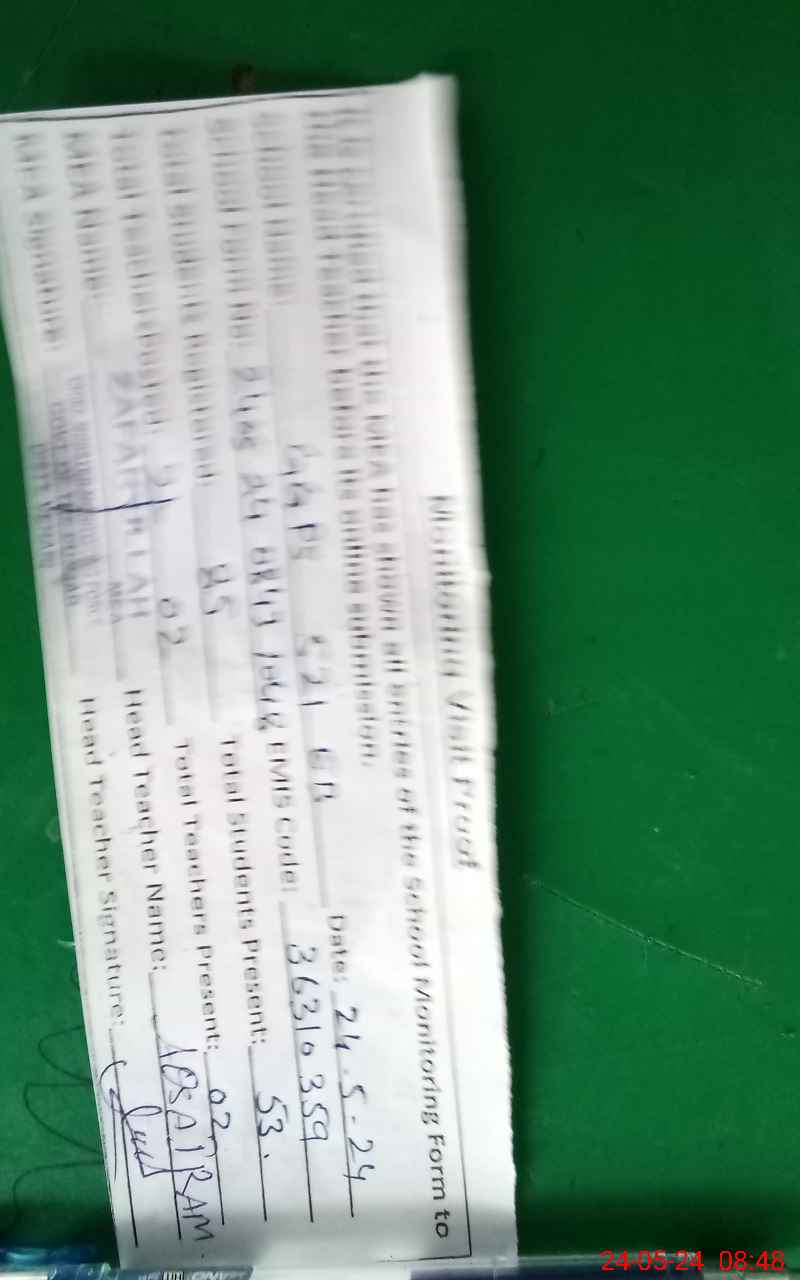 Monitoring Visit Proof
It is certified that the MEA has shown all entries of the School Monitoring Form to
the Head Teacher before its online submission.
School Name: GGPS 521 EB Date: 24.5-24
School Form No: EMIS Code: 36310359
Total Students Registered: 85 Total Students Present: 53.
Total Teachers Posted: 02 Total Teachers Present: 02
MEA Name: ZAFARULLAH Head Teacher Name: IRAM
MEA Signature: Head Teacher Signature:
24-05-24 08:48